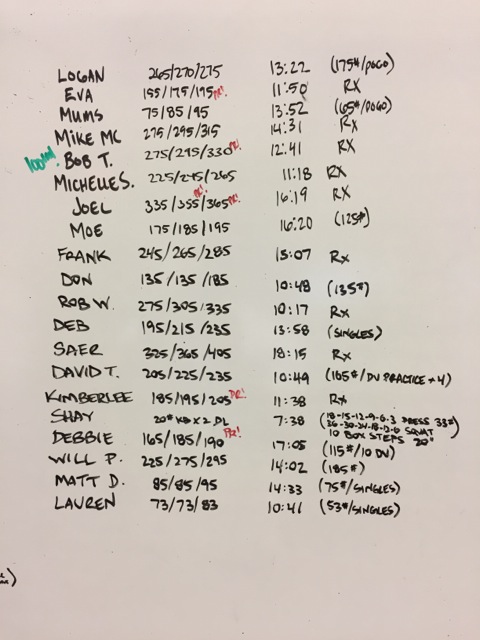 LOGAN 265/270/275 13:22 (175#/POGO)
EVA 155/175/195 PR! 11:50 RX
MUMS 75/85/95 13:52 (65#/POGO)
MIKE MC 275/295/315 14:31 RX
BOB T. 275/295/330 PR! 12:41 RX
MICHELLE S. 225/245/265 11:18 RX
JOEL 335/355/365 PR! PR! 16:19 RX
MOE 175/185/195 16:20 (125#)
FRANK 245/265/285 15:07 RX
DON 135/135/185 10:48 (135#)
ROB W. 275/305/335 10:17 RX
DEB 195/215/235 13:58 (SINGLES)
SAER 325/365/405 18:15 RX
DAVID T. 205/225/235 10:49 (165#/DU PRACTICE x 4)
KIMBERLEE 185/195/205 PR! 11:38 RX
SHAY 20# KB x 2 DL 7:38 (18-15-12-9-6-3 PRESS 33#)
36-30-24-18-12-6 SQUAT
10 BOX STEPS 20"
DEBBIE 165/185/190 PR! 17:05 (115#/10 DU)
WILL P. 225/275/295 14:02 (185#)
MATT D. 85/85/95 14:33 (75#/SINGLES)
LAUREN 73/73/83 10:41 (53#/SINGLES)